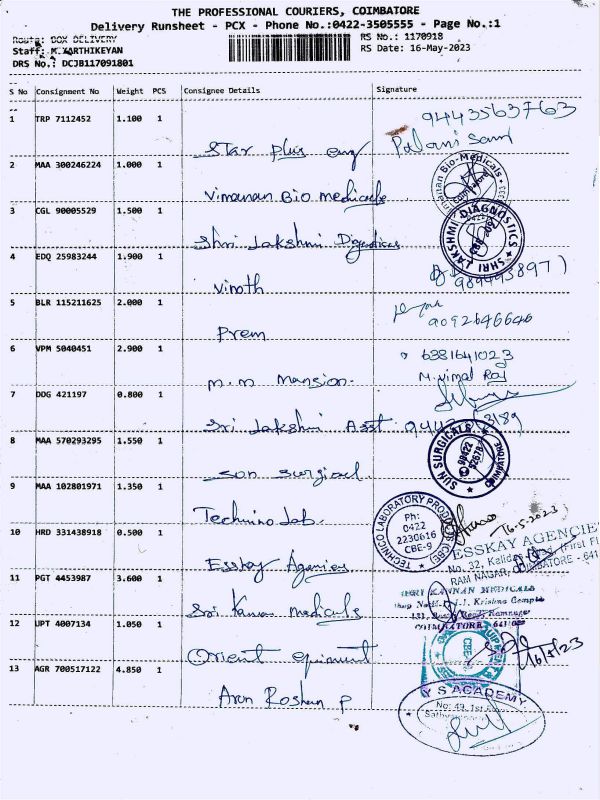 THE PROFESSIONAL COURIERS, COIMBATORE
Delivery Runsheet - PCX - Phone No.:0422-3505555 - Page No.:1
Route: BOX DELIVERY
RS No.: 1170918
Staff: M.KARTHIKEYAN
RS Date: 16-May-2023
DRS No.: DCJB117091801
S No Consignment No Weight PCS Consignee Details Signature
9443563763
1 TRP 7112452 1.100 1
Star plus eng Palani Sami
2 MAA 300246224 1.000 1
Vimanan Bio medicals
Bio-Medicals
3 CGL 90005529 1.500 1
Shri Lakshmi Dignostics
SHRI LAKSHMI DIAGNOSTICS
4 EDQ 25983244 1.900 1
Vinoth
5 BLR 115211625 2.000 1
Prem 9092646646
6 VPM 5040451 2.900 1 6381641023
m.m mansion. M.Vimal Raj
7 DDG 421197 0.800 1
Sri Lakshmi Asst
8 MAA 570293295 1.550 1
SUN SURGICALS
son surgical
9 MAA 102801971 1.350 1
Technino Lab.
TECHNICO LABORATORY PRODUCTS (CBE)
Ph:
0422
2230616
CBE-9
16-5-2023
10 HRD 331438918 0.500 1
Esskay Agencies
ESSKAY AGENCIE
No. 32, (First Fl
RAM NAGAR, COIMBATORE - 641
11 PGT 4453987 3.600 1
Sri Kannan medicals
KANNAN MEDICALS
Krishna Comple
Ramnagar
COIMBATORE - 641 009
12 UPT 4007134 1.050 1
Orient equipment
16/5/23
13 AGR 700517122 4.850 1
Arun Roshan P
Y S ACADEMY
No: 49, 1st